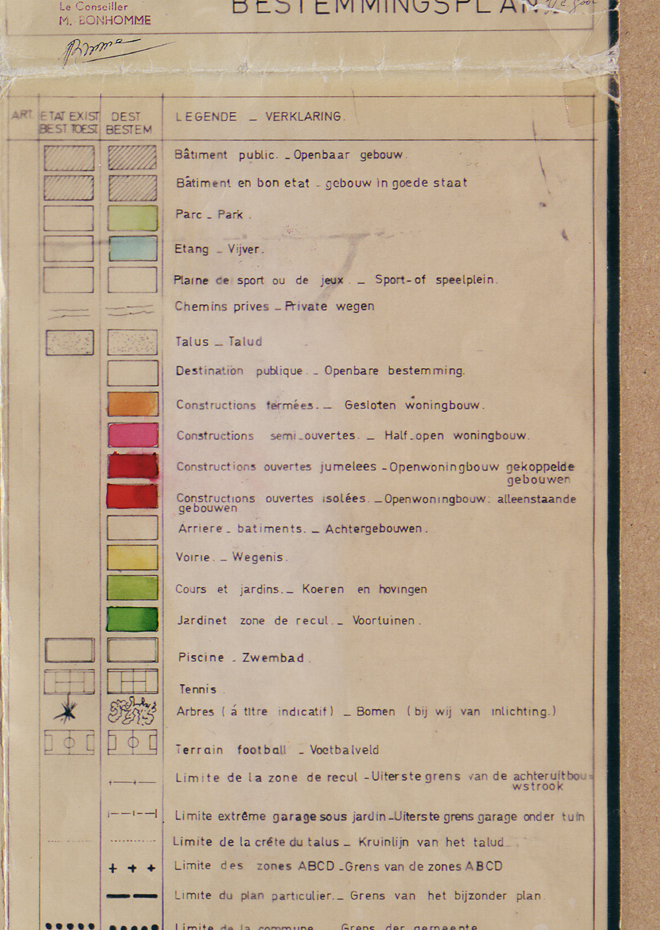 Le Conseiller
M. BONHOMME
BESTEMMINGSPLAN
ART. ETAT EXIST DEST LEGENDE _ VERKLARING.
BEST TOEST BESTEM
Bâtiment public. _ Openbaar gebouw.
Bâtiment en bon etat - gebouw in goede staat
Parc _ Park .
Etang _ Vijver.
Plaine de sport ou de jeux. _ Sport-of speelplein.
Chemins prives _ Private wegen
Talus _ Talud
Destination publique. _ Openbare bestemming.
Constructions fermées. _ Gesloten woningbouw.
Constructions semi-ouvertes. _ Half-open woningbouw.
Constructions ouvertes jumelees - Openwoningbouw gekoppelde
gebouwen
Constructions ouvertes isolées. _ Openwoningbouw: alleenstaande
gebouwen
Arriere - batiments. _ Achtergebouwen.
Voirie. _ Wegenis.
Cours et jardins. _ Koeren en hovingen
Jardinet zone de recul. _ Voortuinen.
Piscine - Zwembad.
Tennis
Arbres ( á titre indicatif ) _ Bomen ( bij wij van inlichting. )
Terrain football _ Voetbalveld
Limite de la zone de recul - Uiterste grens van de achteruitbou
wstrook
Limite extrême garage sous jardin _ Uiterste grens garage onder tuin
Limite de la crête du talus _ Kruinlijn van het talud
Limite des zones ABCD _ Grens van de zones ABCD
Limite du plan particulier. _ Grens van het bijzonder plan.
Limite de la commune _ Grens der gemeente